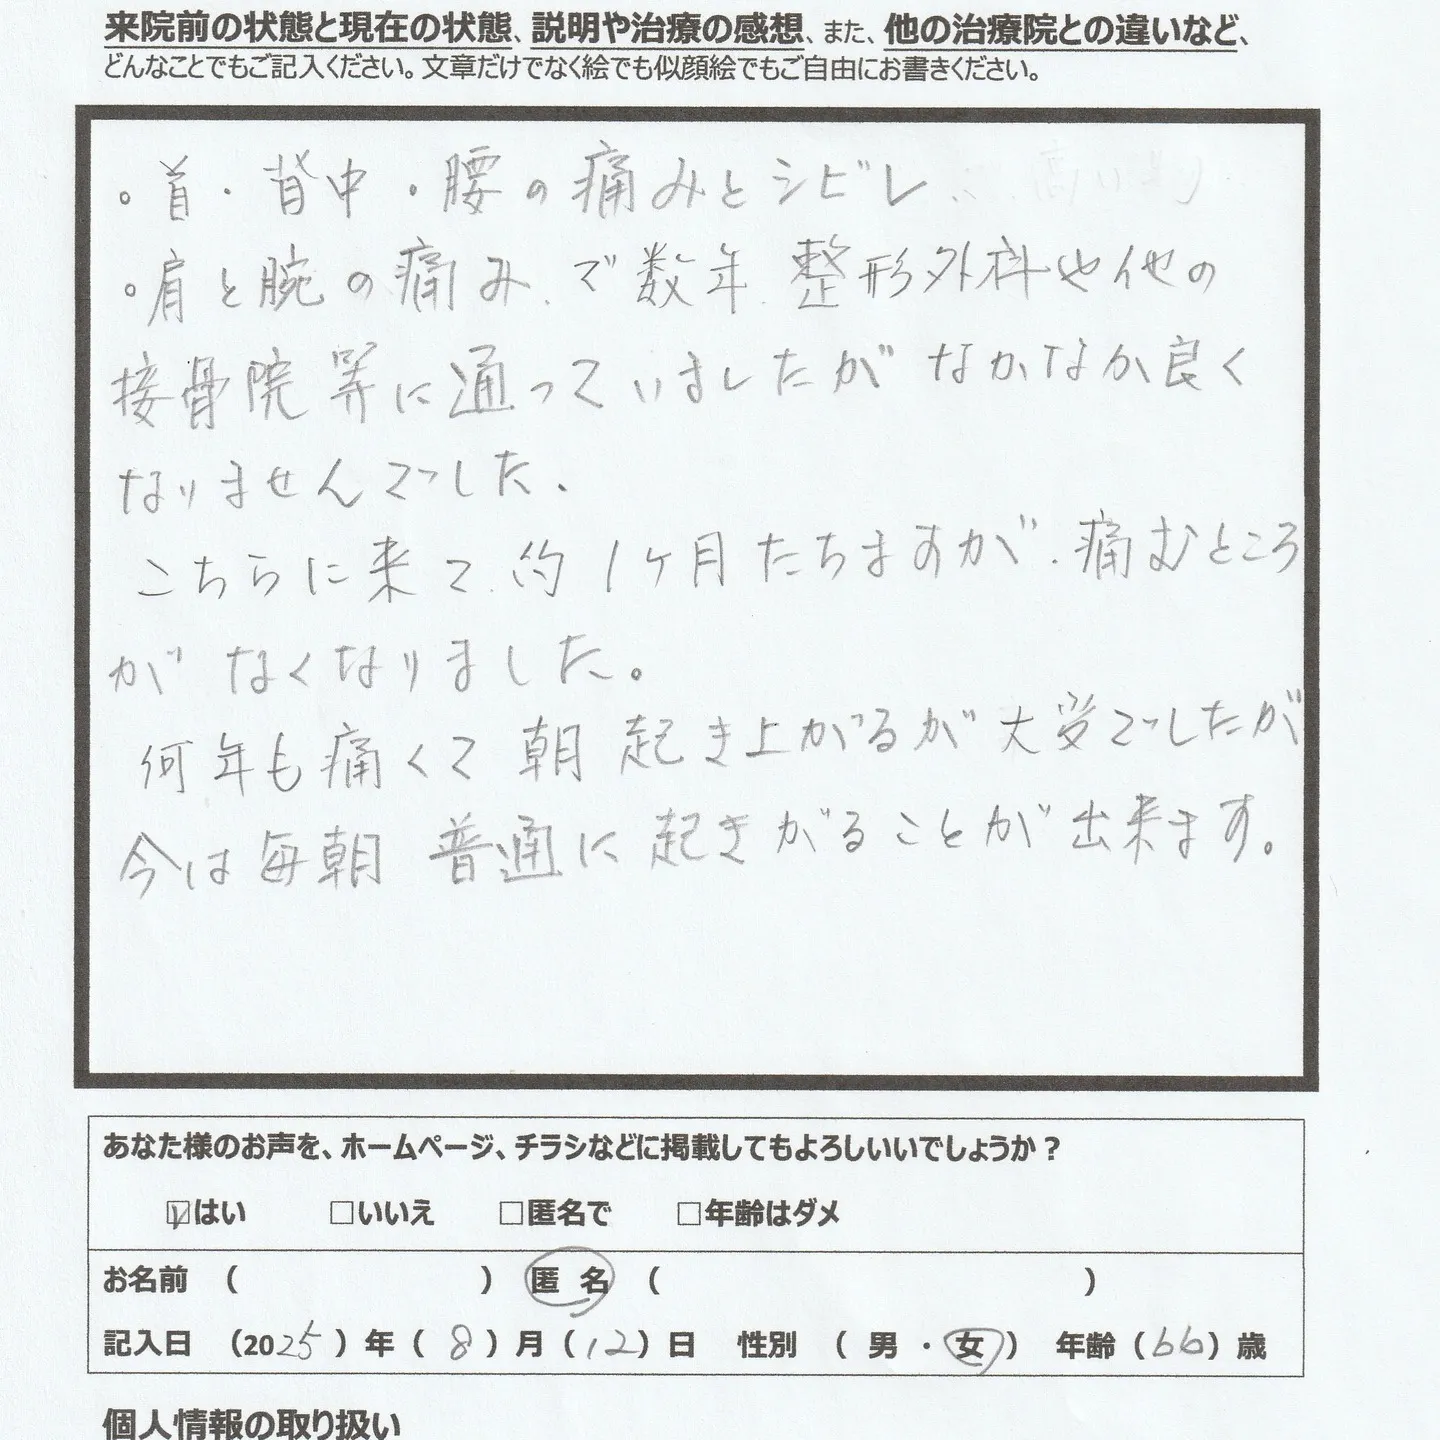 来院前の状態と現在の状態、説明や治療の感想、また、他の治療院との違いなど、
どんなことでもご記入ください。文章だけでなく絵でも似顔絵でもご自由にお書きください。
。首・背中・腰の痛みとシビレ
。肩と腕の痛み、で数年、整形外科や他の
接骨院等に通っていましたがなかなか良く
なりませんでした、
こちらに来て、約1ヶ月たちますが、痛むところ
がなくなりました。
何年も痛くて朝起き上がるが大変でしたが
今は毎朝普通に起きがることが出来ます。
あなた様のお声を、ホームページ、チラシなどに掲載してもよろしいいでしょうか？
☑はい □いいえ □匿名で □年齢はダメ
お名前 （ ） 匿名 （ ）
記入日 （2025）年（8）月（12）日 性別 （男・女） 年齢（66）歳
個人情報の取り扱い